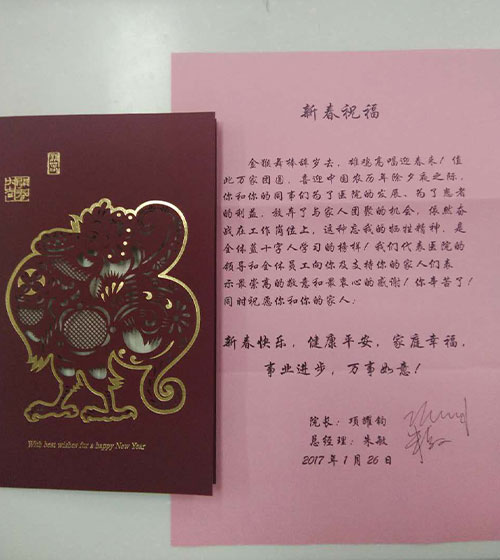 With best wishes for a happy New Year
新春祝福
金猴舞棒辞岁去，雄鸡高唱迎春来！值
此万家团圆，喜迎中国农历年除夕夜之际，
你和你的同事们为了医院的发展、为了患者
的利益，放弃了与家人团聚的机会，依然奋
战在工作岗位上，这种忘我的牺牲精神，是
全体蓝十字人学习的榜样！我们代表医院的
领导和全体员工向你及支持你的家人们表
示最崇高的敬意和最衷心的感谢！你辛苦了！
同时祝愿你和你的家人：
新春快乐，健康平安，家庭幸福，
事业进步，万事如意！
院长：项耀钧
总经理：朱敏
2017年1月26日